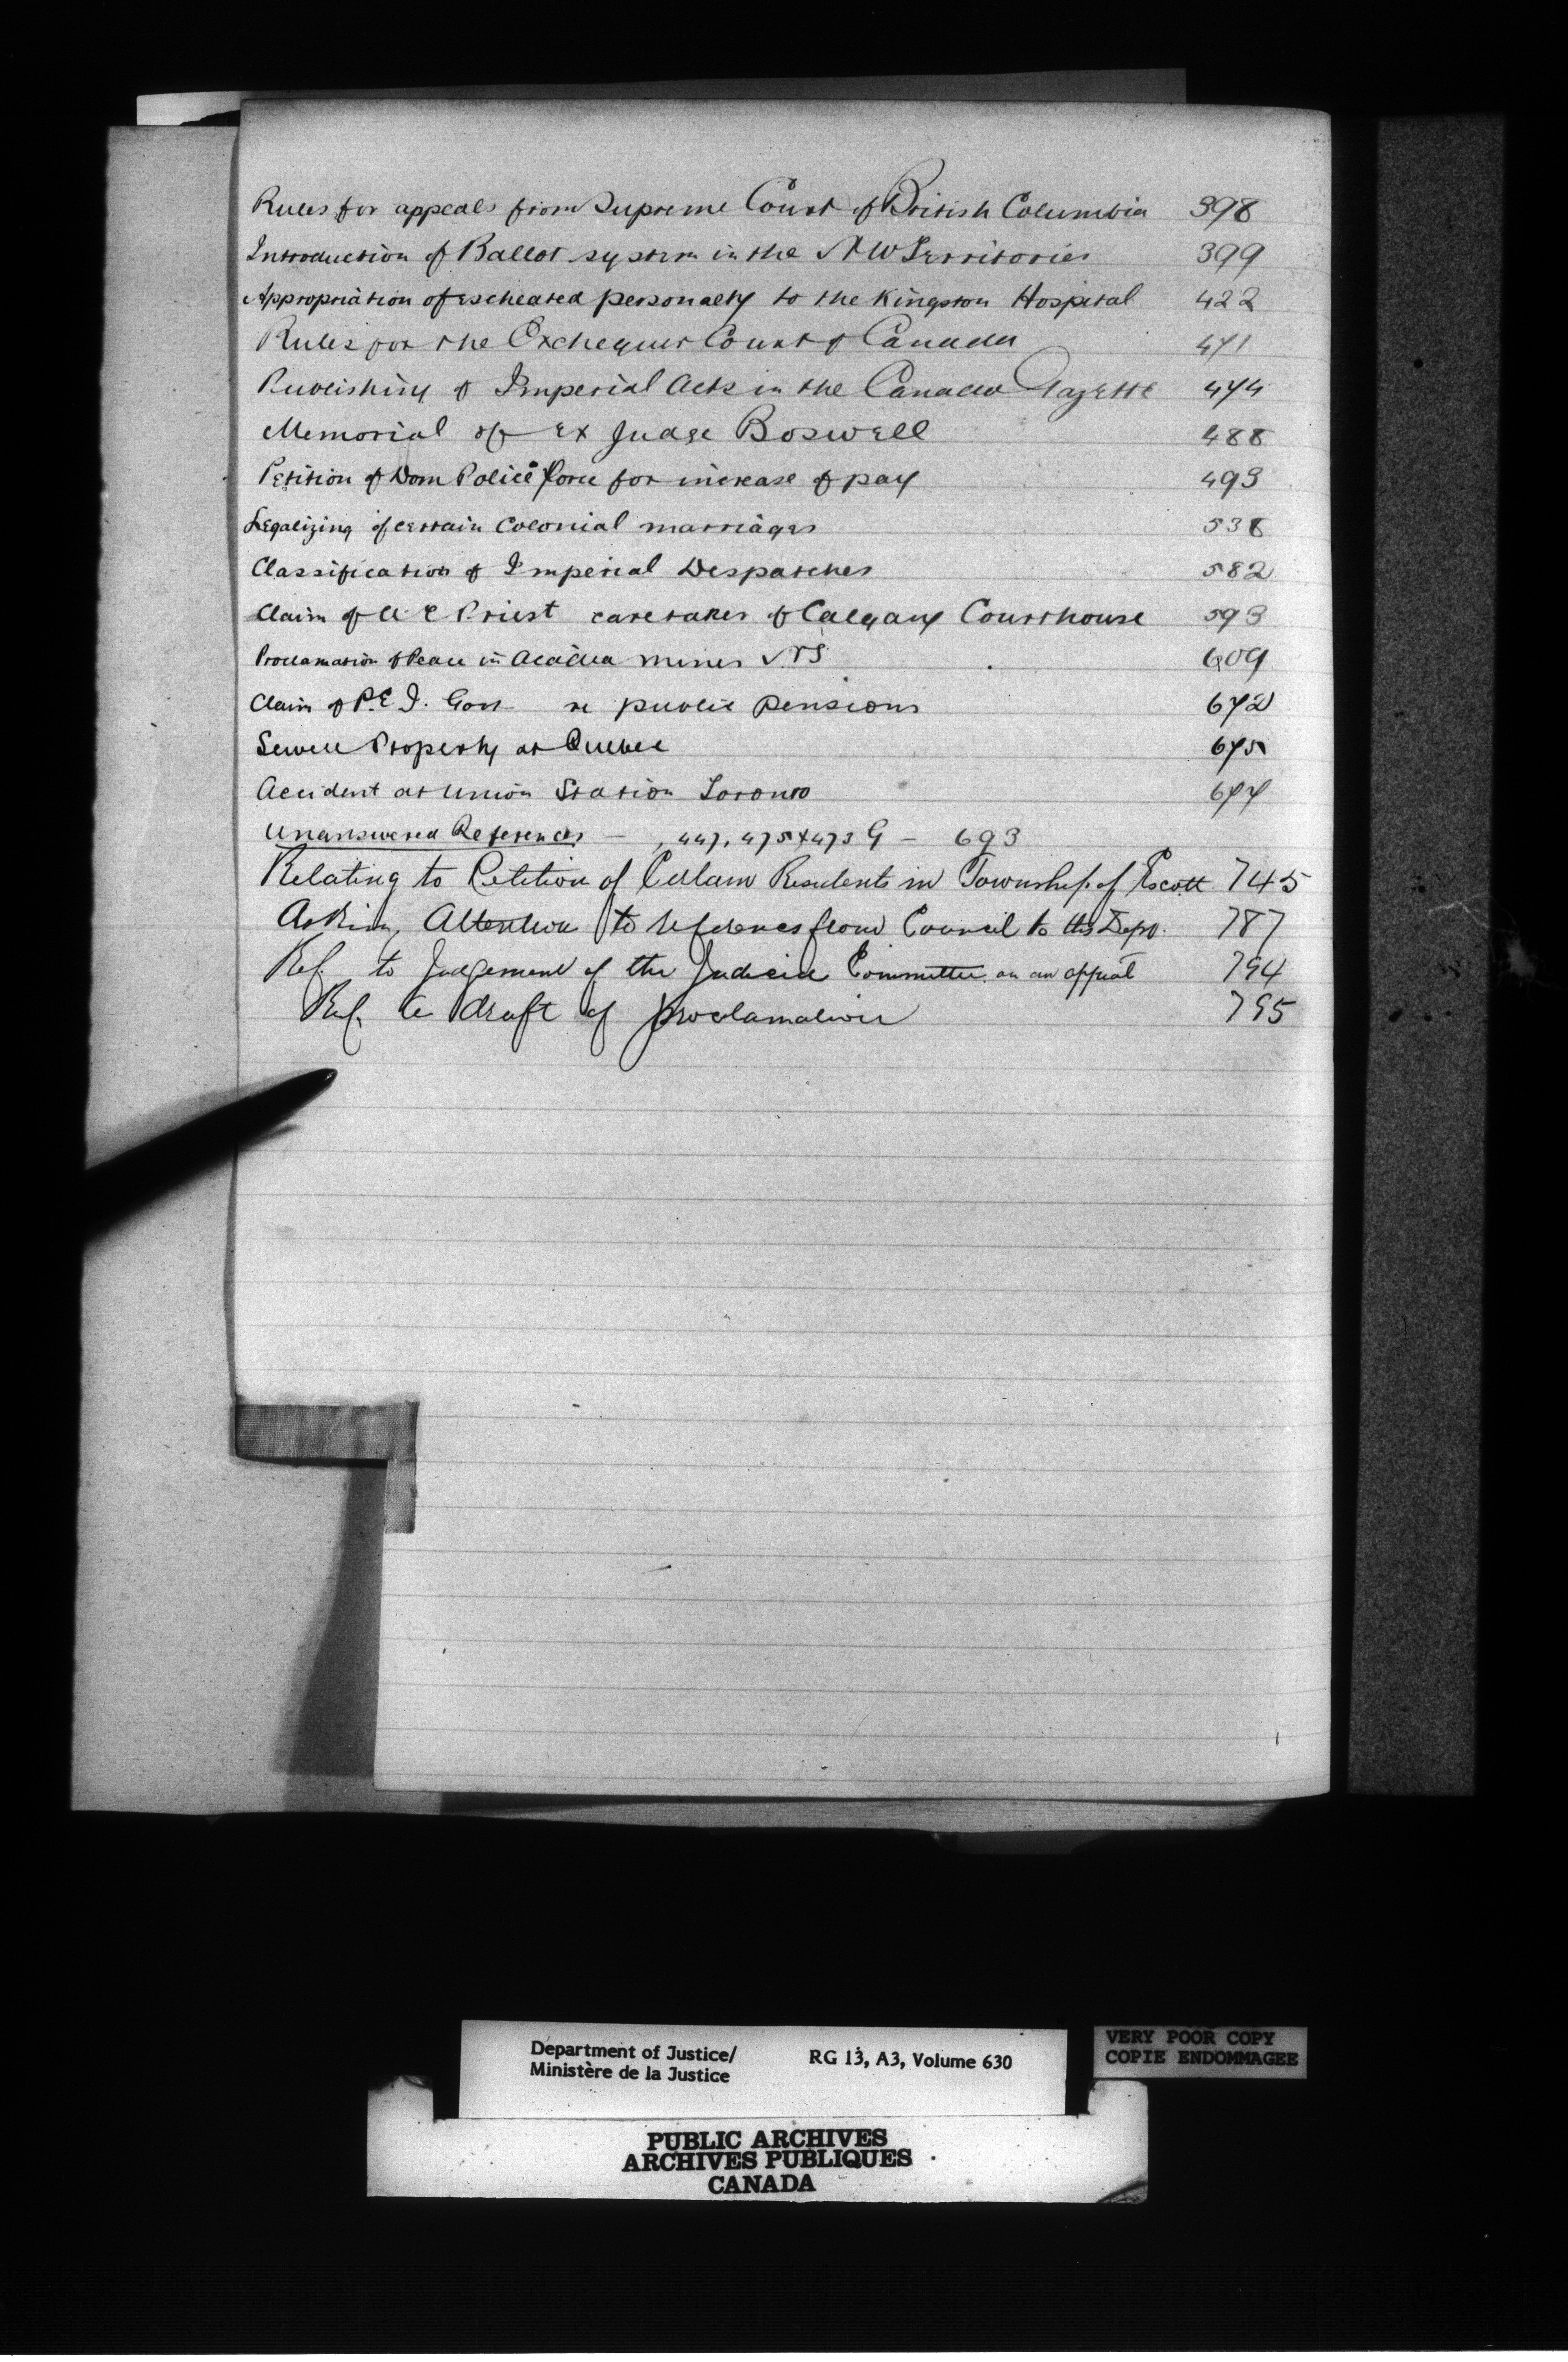 Rules for appeals from Supreme Court of British Columbia 398
Introduction of Ballot system in the N W Territories 399
Appropriation of escheated personalty to the Kingston Hospital 422
Rules for the Exchequer Court of Canada 471
Publishing of Imperial Acts in the Canada Gazette 474
Memorial of Ex Judge Boswell 488
Petition of Dom Police Force for increase of pay 493
Legalizing of certain Colonial marriages 538
Classification of Imperial Despatches 582
Claim of A E Priest caretaker of Calgary Courthouse 593
Proclamation of Peace in Acadia mines N S 609
Claim of P.E.I. Govt re public pensions 672
Sewell Property at Quebec 675
Accident at Union Station Toronto 677
Unanswered References – 447, 475 & 473 G – 693
Relating to Petition of Certain Residents in Township of Escott 745
Asking Attention to references from Council to this Dept. 787
Ref. to Judgement of the Judicial Committee on an appeal 794
Ref. to draft of proclamation 795
Department of Justice/ RG 13, A3, Volume 630
Ministère de la Justice
VERY POOR COPY
COPIE ENDOMMAGEE
PUBLIC ARCHIVES
ARCHIVES PUBLIQUES
CANADA